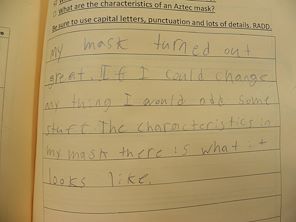 What are the characteristics of an Aztec mask?
Be sure to use capital letters, punctuation and lots of details. RADD.
my mask turned out
great. If I could change
my thing I would add some
stuff. The characteristics in
my mask there is what it
looks like.